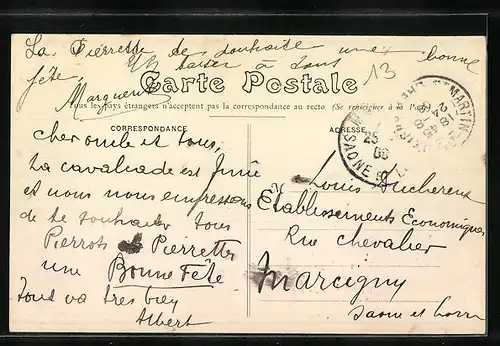 La Pierrette te souhaite une bonne
fête, un baiser à tous
Marguerite
13
Carte Postale
Tous les pays étrangers n'acceptent pas la correspondance au recto (Se renseigner à la Poste)
CORRESPONDANCE
ADRESSE
Cher oncle et tous,
La cavalcade est finie
et nous nous empressons
de te souhaiter tous
Pierrots et Pierrettes
une Bonne Fête
Tout va très bien
Albert
Louis Duchereux
Etablissements Economiques
Rue Chevalier
Marcigny
Saone et Loire